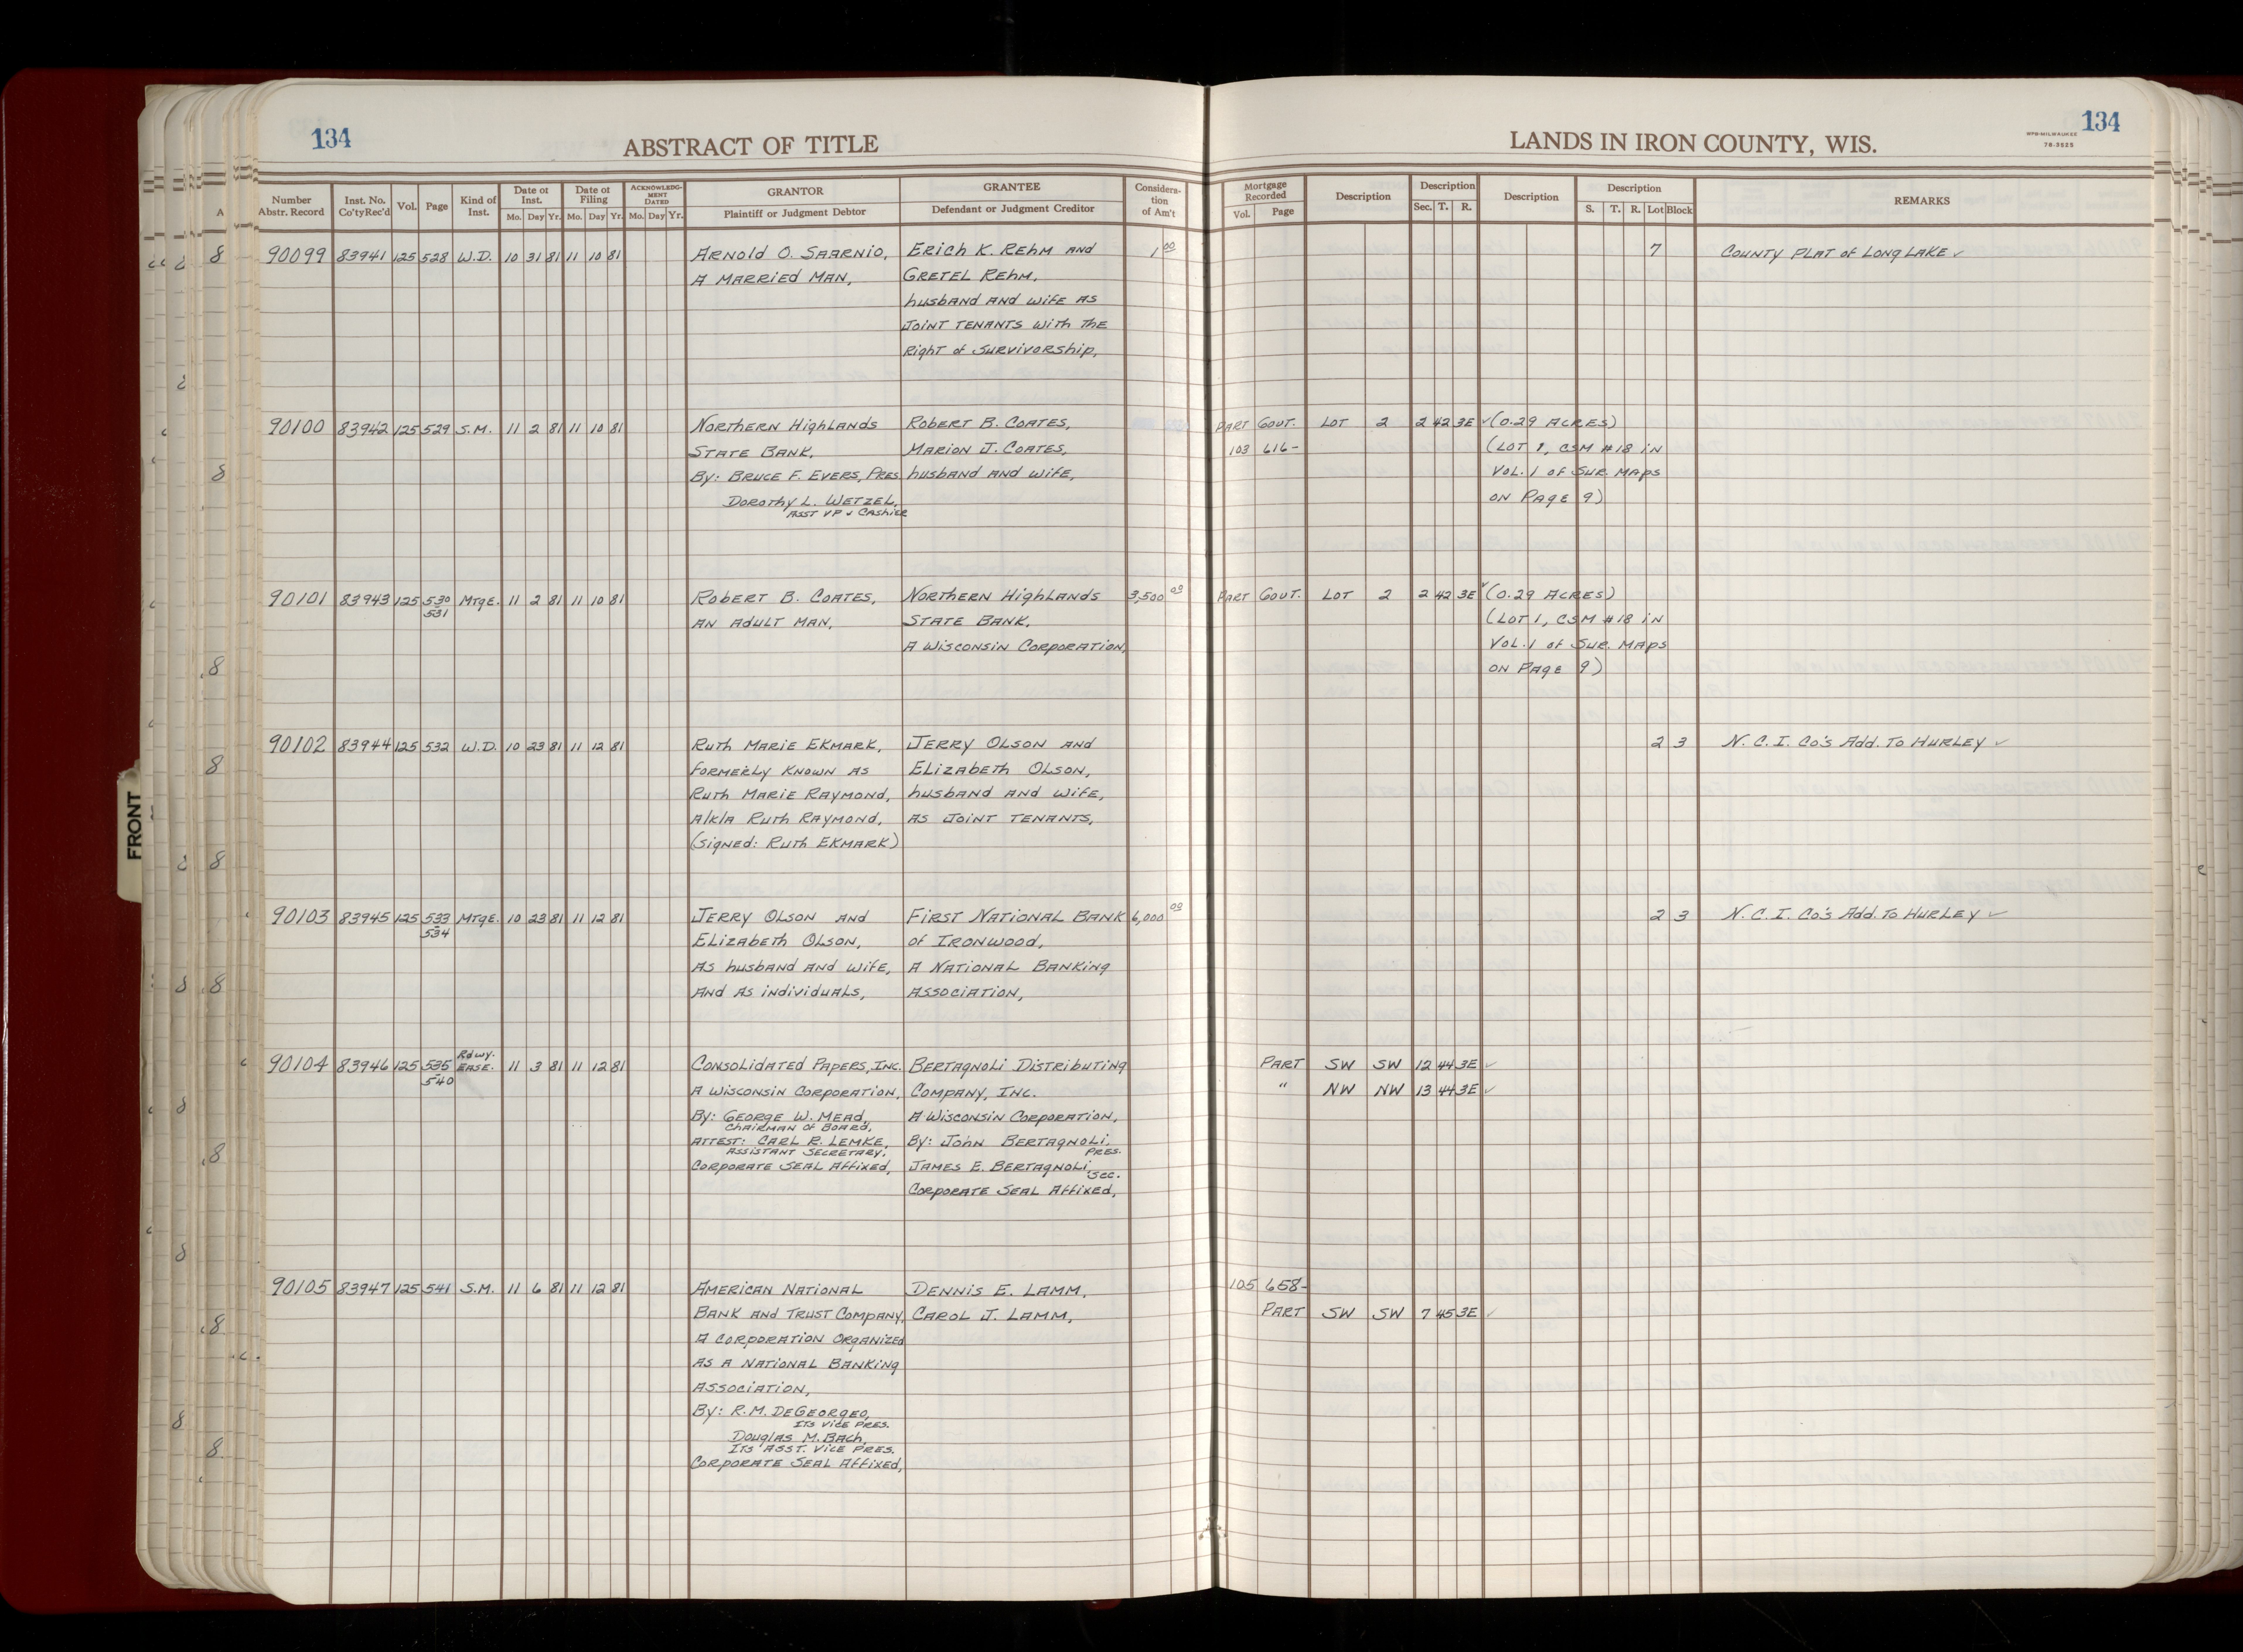 134
ABSTRACT OF TITLE
LANDS IN IRON COUNTY, WIS.
WPB-MILWAUKEE
76-3525
134
Number Abstr. Record | Inst. No. Co'tyRec'd | Vol. | Page | Kind of Inst. | Date of Inst. Mo. Day Yr. | Date of Filing Mo. Day Yr. | ACKNOWLEDGMENT DATED Mo. Day Yr. | GRANTOR Plaintiff or Judgment Debtor | GRANTEE Defendant or Judgment Creditor | Consideration of Am't | Mortgage Recorded Vol. Page | Description | Description Sec. T. R. | Description | Description S. T. R. Lot Block | REMARKS
90099 83941 125 528 W.D. 10 31 81 11 10 81 ARNOLD O. SAARNIO, ERICH K. REHM AND 1 00 7 COUNTY PLAT OF LONG LAKE ✓
A MARRIED MAN, GRETEL REHM,
HUSBAND AND WIFE AS
JOINT TENANTS WITH THE
RIGHT OF SURVIVORSHIP,
90100 83942 125 529 S.M. 11 2 81 11 10 81 NORTHERN HIGHLANDS ROBERT B. COATES, PART GOVT. LOT 2 2 42 3E ✓ (0.29 ACRES)
STATE BANK, MARION J. COATES, 103 616- (LOT 1, CSM #18 IN
BY: BRUCE F. EVERS, PRES. HUSBAND AND WIFE, VOL. 1 OF SUR. MAPS
DOROTHY L. WETZEL, ON PAGE 9)
ASST VP & CASHIER
90101 83943 125 530 MTGE. 11 2 81 11 10 81 ROBERT B. COATES, NORTHERN HIGHLANDS 3,500 00 PART GOVT. LOT 2 2 42 3E ✓ (0.29 ACRES)
531 AN ADULT MAN, STATE BANK, (LOT 1, CSM #18 IN
A WISCONSIN CORPORATION, VOL. 1 OF SUR. MAPS
ON PAGE 9)
90102 83944 125 532 W.D. 10 23 81 11 12 81 RUTH MARIE EKMARK, JERRY OLSON AND 2 3 N.C.I. CO'S ADD. TO HURLEY ✓
FORMERLY KNOWN AS ELIZABETH OLSON,
RUTH MARIE RAYMOND, HUSBAND AND WIFE,
A/K/A RUTH RAYMOND, AS JOINT TENANTS,
(SIGNED: RUTH EKMARK)
90103 83945 125 533 MTGE. 10 23 81 11 12 81 JERRY OLSON AND FIRST NATIONAL BANK 6,000 00 2 3 N.C.I. CO'S ADD. TO HURLEY ✓
534 ELIZABETH OLSON, OF IRONWOOD,
AS HUSBAND AND WIFE, A NATIONAL BANKING
AND AS INDIVIDUALS, ASSOCIATION,
90104 83946 125 535 RDWY. EASE. 11 3 81 11 12 81 CONSOLIDATED PAPERS, INC. BERTAGNOLI DISTRIBUTING PART SW SW 12 44 3E ✓
540 A WISCONSIN CORPORATION, COMPANY, INC. " NW NW 13 44 3E ✓
BY: GEORGE W. MEAD, A WISCONSIN CORPORATION,
CHAIRMAN OF BOARD,
ATTEST: CARL R. LEMKE, BY: JOHN BERTAGNOLI,
ASSISTANT SECRETARY, PRES.
CORPORATE SEAL AFFIXED, JAMES E. BERTAGNOLI,
SEC.
CORPORATE SEAL AFFIXED,
90105 83947 125 541 S.M. 11 6 81 11 12 81 AMERICAN NATIONAL DENNIS E. LAMM, 105 658-
BANK AND TRUST COMPANY, CAROL J. LAMM, PART SW SW 7 45 3E ✓
A CORPORATION ORGANIZED
AS A NATIONAL BANKING
ASSOCIATION,
BY: R.M. DEGEORGEO,
ITS VICE PRES.
DOUGLAS M. BACH,
ITS ASST. VICE PRES.
CORPORATE SEAL AFFIXED,
FRONT